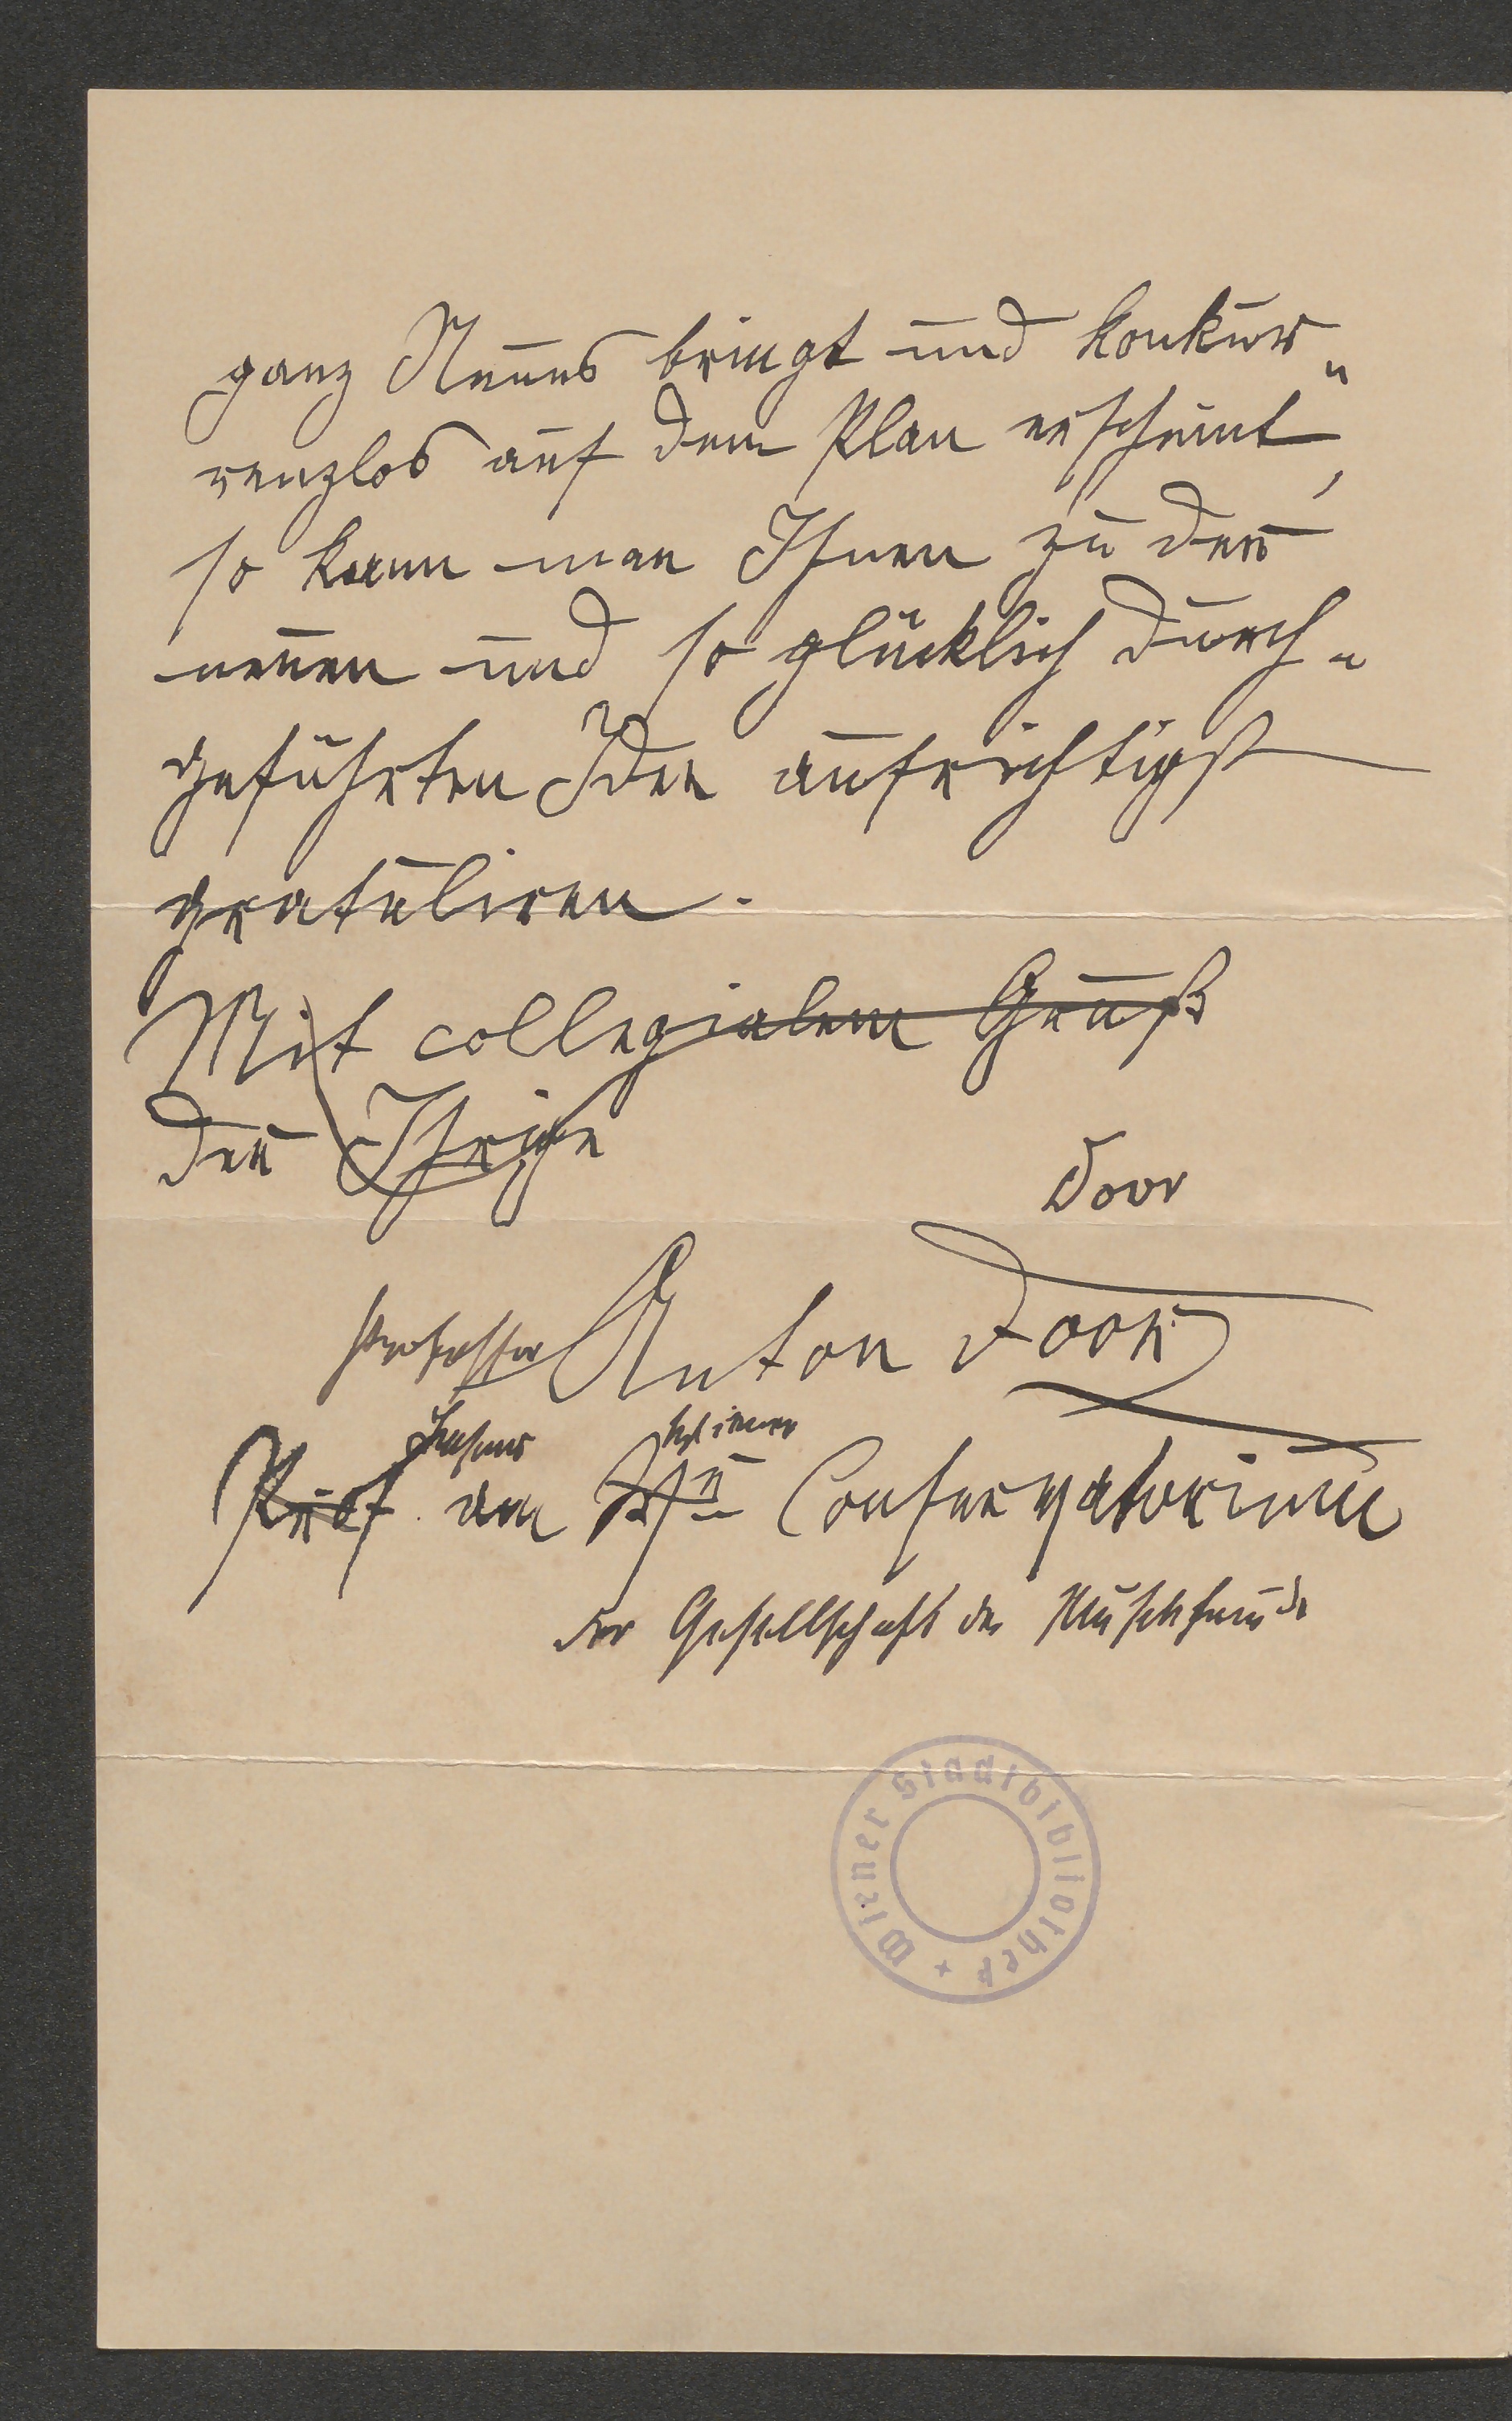 ganz Neues bringt und konkur„
renzlos auf dem Plan erscheint,
so kann man Ihnen zu der
neuen und so glücklich durch„
geführten Idee aufrichtigst
gratuliren.
Mit collegialem Gruß
der Ihrige
Door
Professor Anton Door
Prof. am Conservatorium
der Gesellschaft der Musikfreunde
Wiener Stadtbibliothek